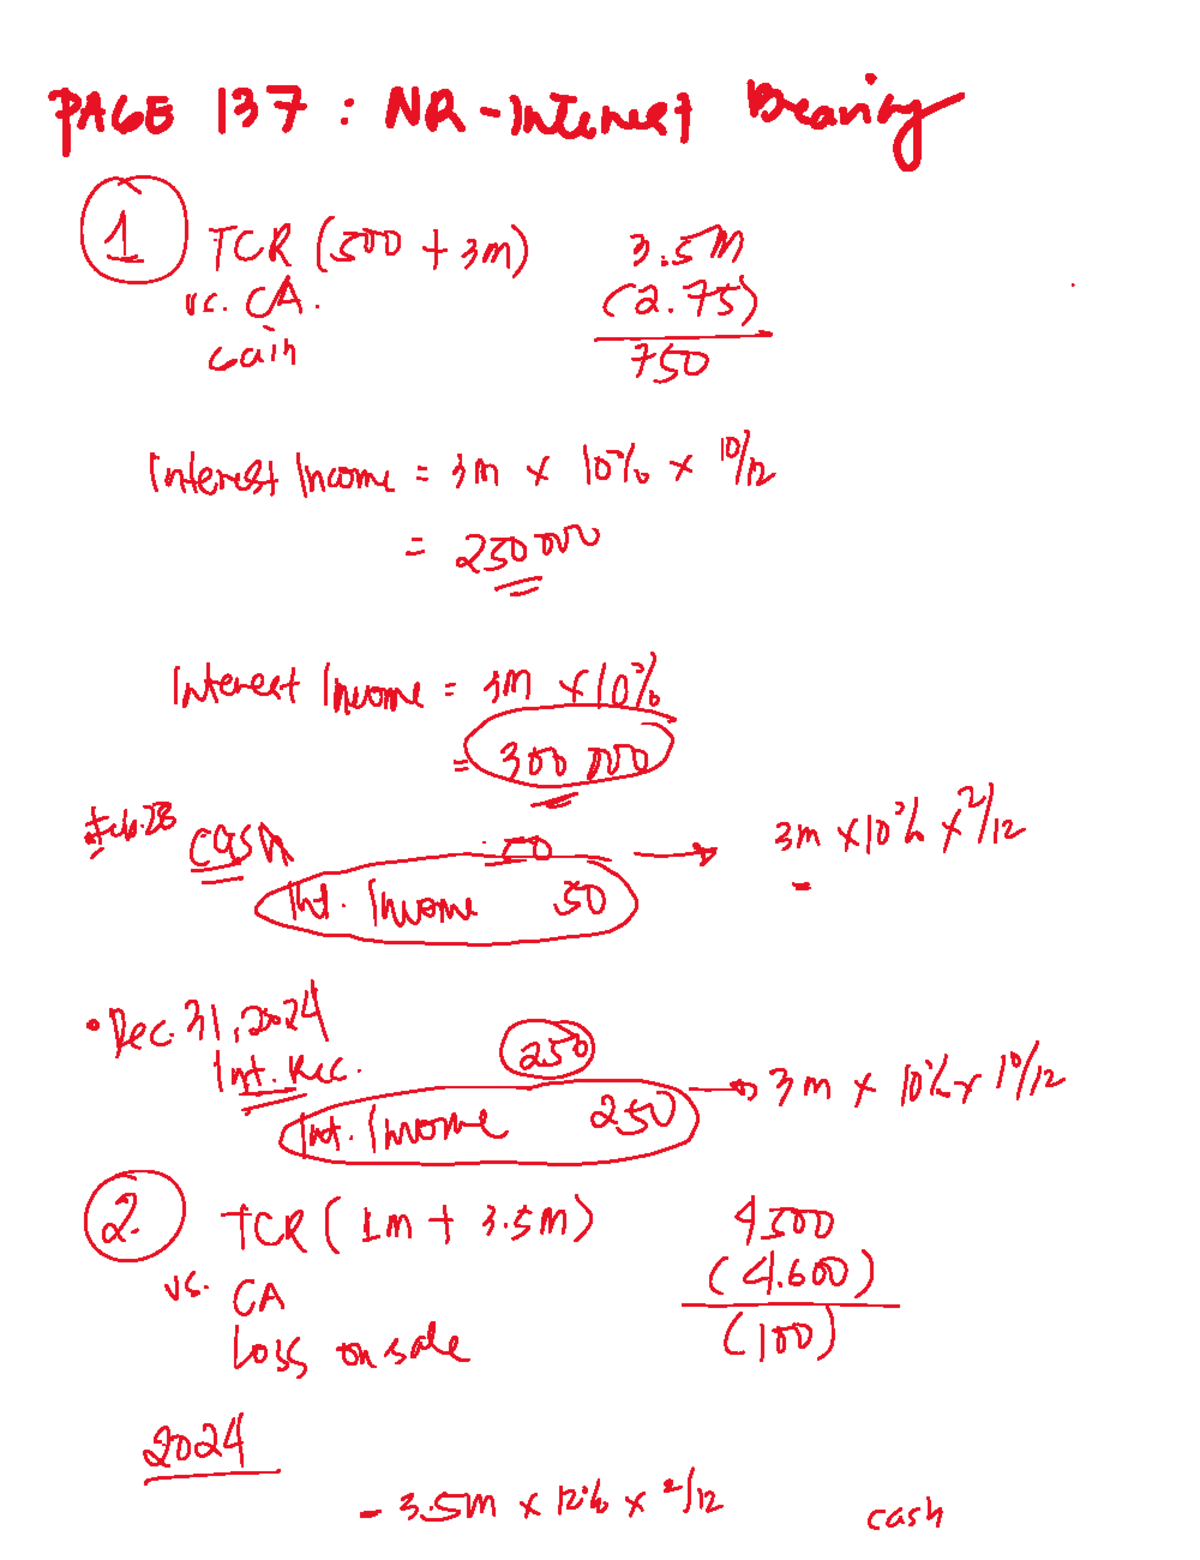 PAGE 137 : NR - Interest Bearing
1 TCR (500 + 3m) 3.5M
vs. CA. (2.75)
Gain 750
Interest Income = 3m x 10% x 10/12
= 250 000
Interest Income = 3M x 10%
= 300 000
Feb. 28 cash 50 → 3m x 10% x 2/12
Int. Income 50
• Dec. 31, 2024
Int. Rec. 250
Int. Income 250 → 3m x 10% x 10/12
2. TCR ( 1m + 3.5M) 4500
vs. CA (4.600)
Loss on sale (100)
2024
- 3.5M x 12% x 2/12 cash